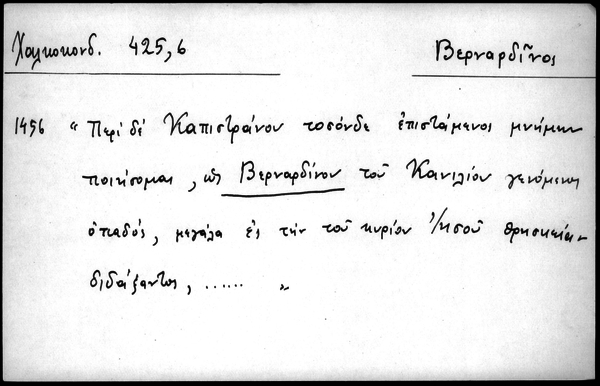 Χαλκοκονδ. 425,6
Βερναρδῖνος
1456 “ Περί δέ Καπιστράνου τοσόνδε ἐπιστάμενοι μνήμην
ποιήσομαι, ὡς Βερναρδίνου τοῦ Κανιλίου γενόμενος
ὀπαδός, μεγάλα ἐς τήν τοῦ κυρίου Ἰησοῦ θρησκείαν
διδάξαντος, ...... „